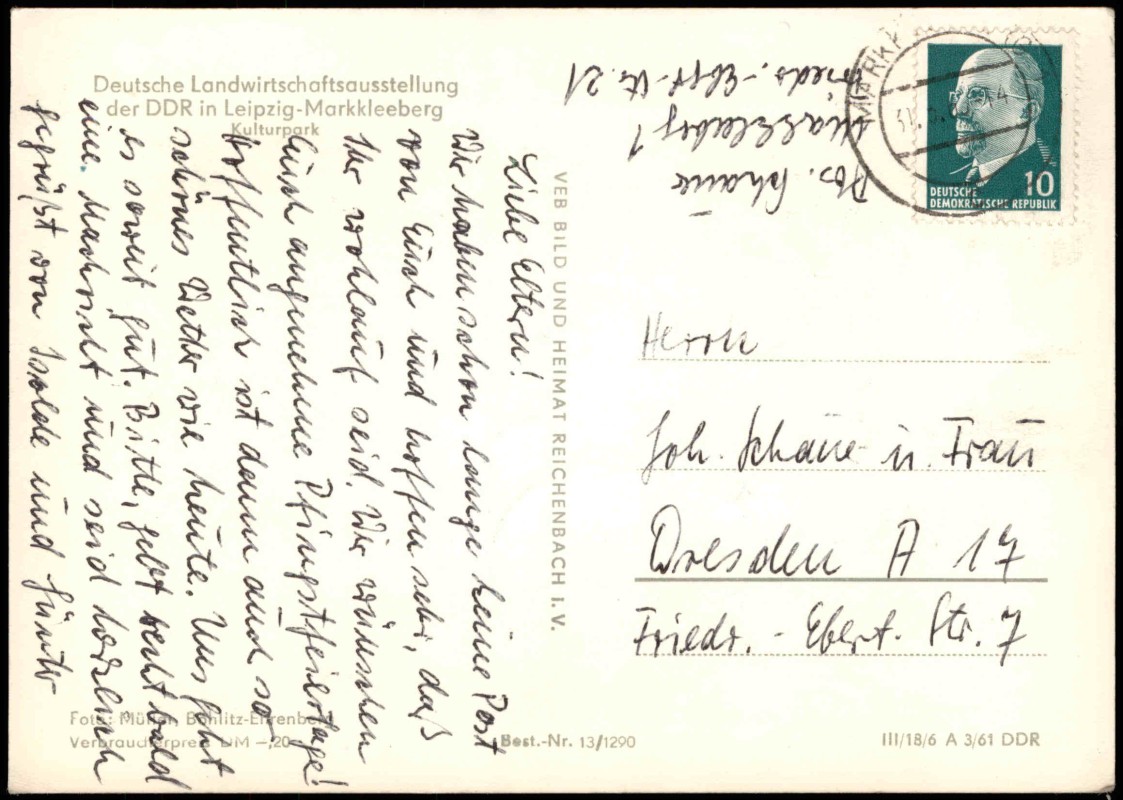 Deutsche Landwirtschaftsausstellung
der DDR in Leipzig-Markkleeberg
Kulturpark
Liebe Eltern!
Wir haben schon lange keine Post
von Euch und hoffen sehr, daß
Ihr wohlauf seid. Wir wünschen
Euch angenehme Pfingstfeiertage!
Hoffentlich ist dann auch so
schönes Wetter wie heute. Uns geht
es soweit gut. Bitte, gebt recht bald
eine Nachricht und seid herzlich
gegrüßt von Isolde und Günter
Foto: Müller, Böhlitz-Ehrenberg
Verbraucherpreis DM -,20
VEB BILD UND HEIMAT REICHENBACH I. V.
Best.-Nr. 13/1290
Abs. Schaue
Markkleeberg 1
Friedr.-Ebert-Str. 21
MARKK
DEUTSCHE
DEMOKRATISCHE REPUBLIK
10
Herrn
Joh. Schaue u. Frau
Dresden A 17
Friedr.-Ebert-Str. 7
III/18/6 A 3/61 DDR